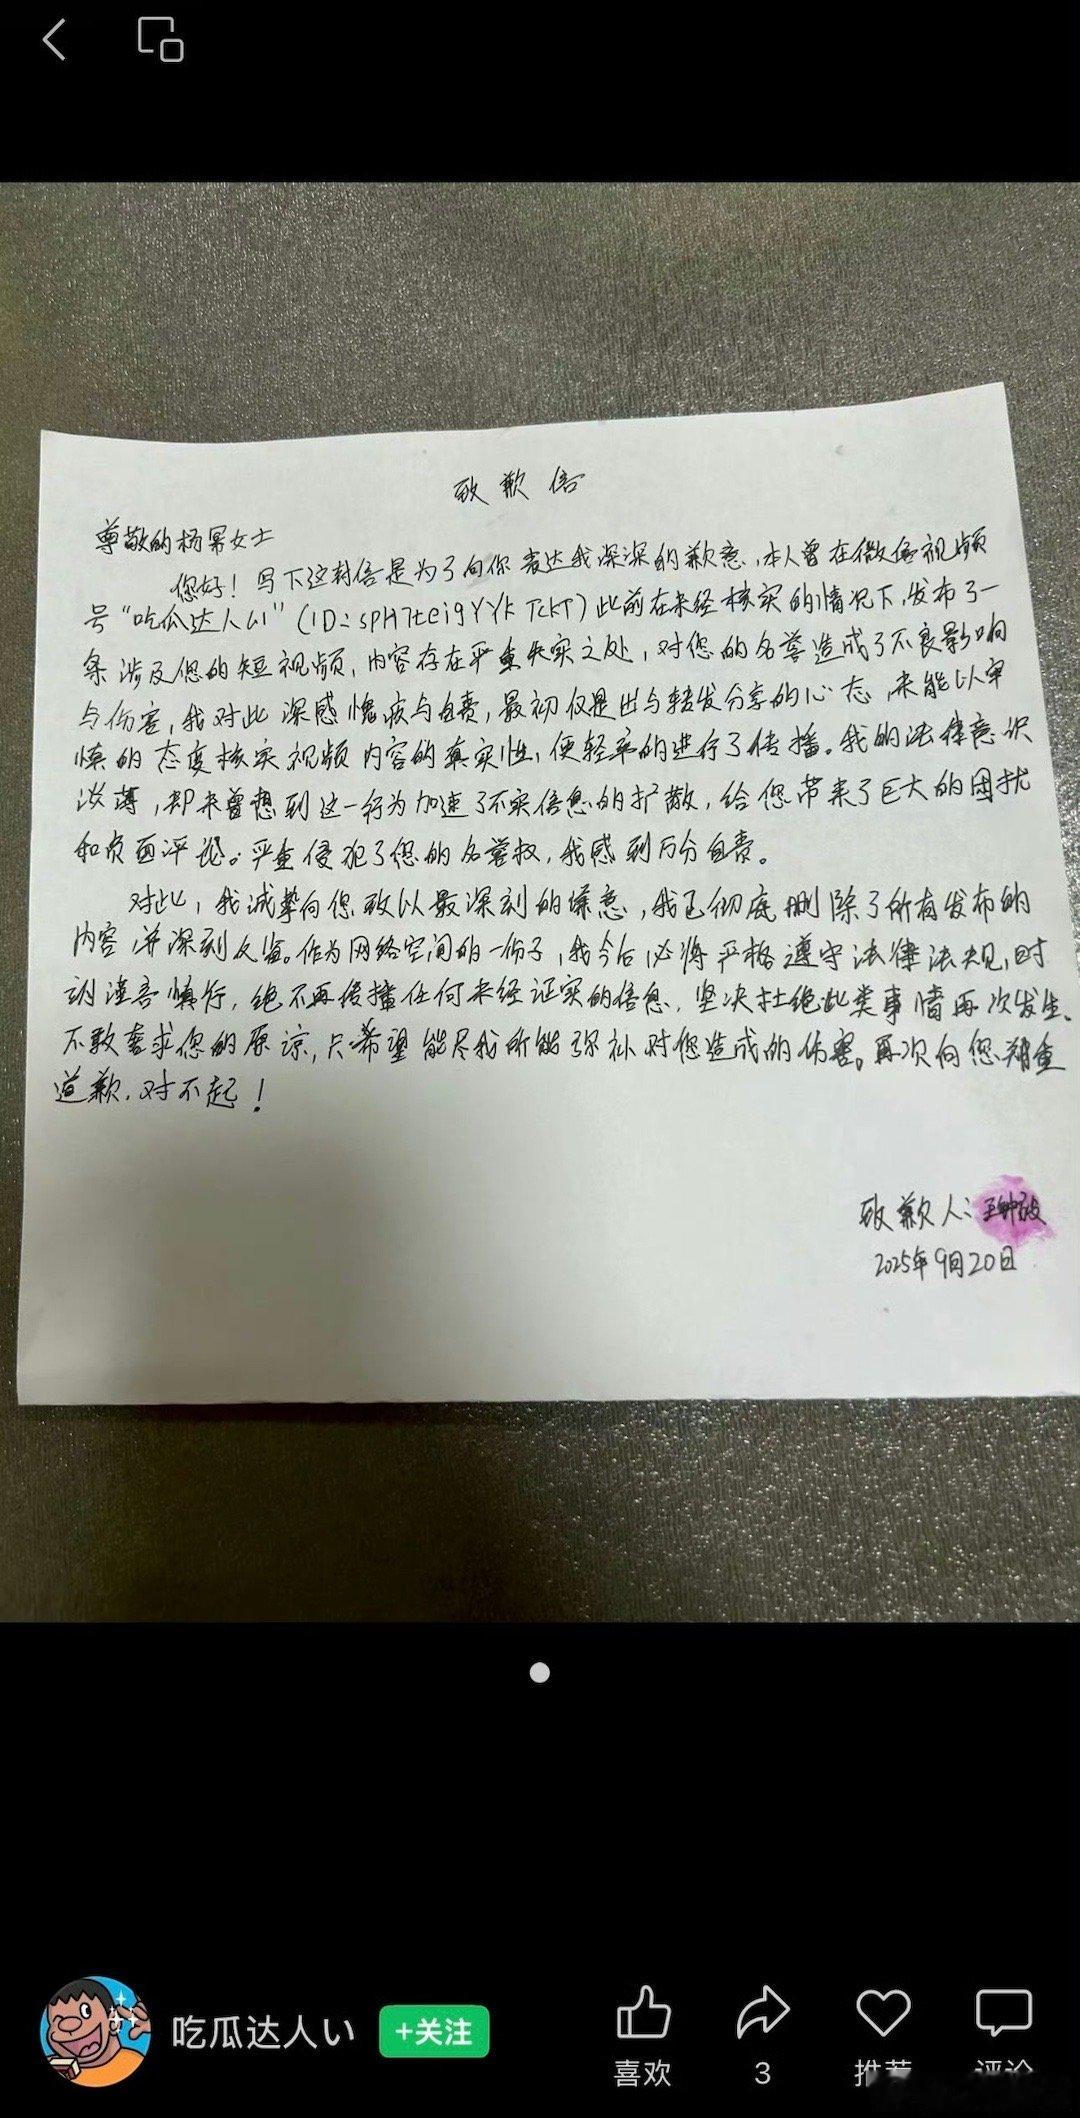 致歉信
尊敬的杨幂女士
您好！写下这封信是为了向你表达我深深的歉意，本人曾在微信视频
号“吃瓜达人い”（ID：sPH7teigYYkTckT）此前在未经核实的情况下，发布了一
条涉及您的短视频，内容存在严重失实之处，对您的名誉造成了不良影响
与伤害，我对此深感愧疚与自责，最初仅是出与转发分享的心态，未能以审
慎的态度核实视频内容的真实性，便轻率的进行了传播。我的法律意识
淡薄，却未曾想到这一行为加速了不实信息的扩散，给您带来了巨大的困扰
和负面评论。严重侵犯了您的名誉权，我感到万分自责。
对此，我诚挚向您致以最深刻的歉意，我已彻底删除了所有发布的
内容，并深刻反省。作为网络空间的一份子，我今后必将严格遵守法律法规，时
刻谨言慎行，绝不再传播任何未经证实的信息，坚决杜绝此类事情再次发生。
不敢奢求您的原谅，只希望能尽我所能弥补对您造成的伤害。再次向您郑重
道歉，对不起！
致歉人：
2025年9月20日
吃瓜达人い
+关注
喜欢
3
推荐
评论